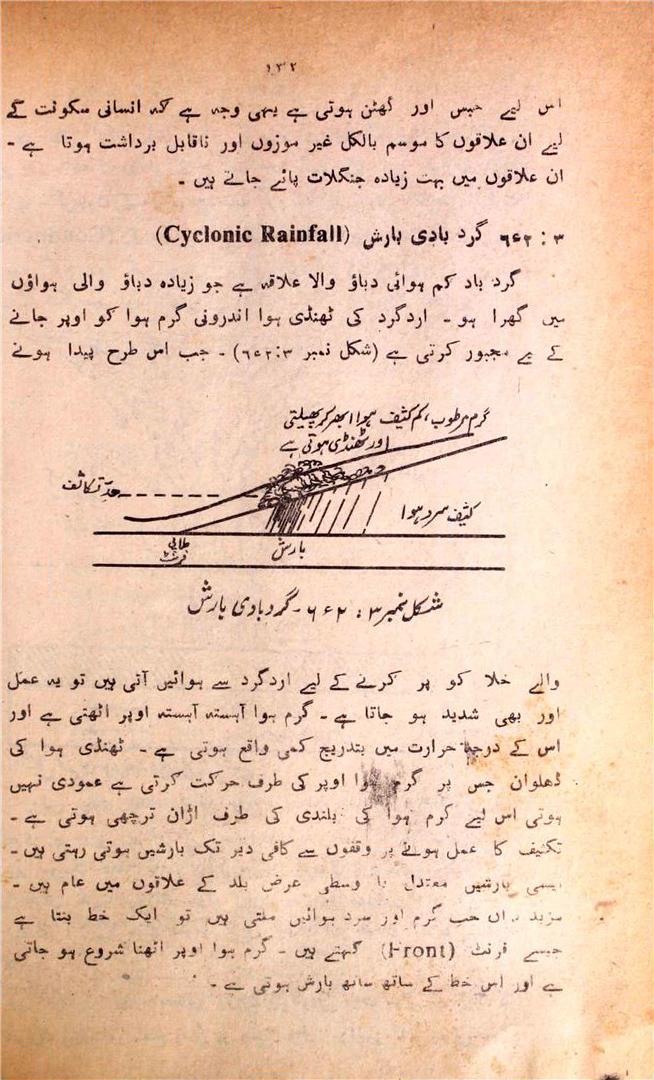 ۱۳۲
اس لیے حبس اور گھٹن ہوتی ہے یہی وجہ ہے کہ انسانی سکونت کے
لیے ان علاقوں کا موسم بالکل غیر موزوں اور ناقابل برداشت ہوتا ہے -
ان علاقوں میں بہت زیادہ جنگلات پائے جاتے ہیں -
۶ء۲ : ۳ گرد بادی بارش (Cyclonic Rainfall)
گرد باد کم ہوائی دباؤ والا علاقہ ہے جو زیادہ دباؤ والی ہواؤں
میں گھرا ہو - اردگرد کی ٹھنڈی ہوا اندرونی گرم ہوا کو اوپر جانے
کے لیے مجبور کرتی ہے (شکل نمبر ۳:۶ء۲) - جب اس طرح پیدا ہونے
گرم مرطوب، کم کثیف ہوا ابھر کر پھیلتی
اور ٹھنڈی ہوتی ہے
حد تکاثف
کثیف سرد ہوا
بارش
فرنٹ
شکل نمبر ۳ : ۶ء۲ - گرد بادی بارش
والے خلا کو پر کرنے کے لیے اردگرد سے ہوائیں آتی ہیں تو یہ عمل
اور بھی شدید ہو جاتا ہے - گرم ہوا آہستہ آہستہ اوپر اٹھتی ہے اور
اس کے درجہ حرارت میں بتدریج کمی واقع ہوتی ہے - ٹھنڈی ہوا کی
ڈھلوان جس پر گرم ہوا اوپر کی طرف حرکت کرتی ہے عمودی نہیں
ہوتی اس لیے گرم ہوا کی بلندی کی طرف اڑان ترچھی ہوتی ہے -
تکثیف کا عمل ہونے پر وقفوں سے کافی دیر تک بارشیں ہوتی رہتی ہیں -
ایسی بارشیں معتدل یا وسطی عرض بلد کے علاقوں میں عام ہیں -
مزید براں جب گرم اور سرد ہوائیں ملتی ہیں تو ایک خط بنتا ہے
جسے فرنٹ (Front) کہتے ہیں - گرم ہوا اوپر اٹھنا شروع ہو جاتی
ہے اور اس خط کے ساتھ ساتھ بارش ہوتی ہے -